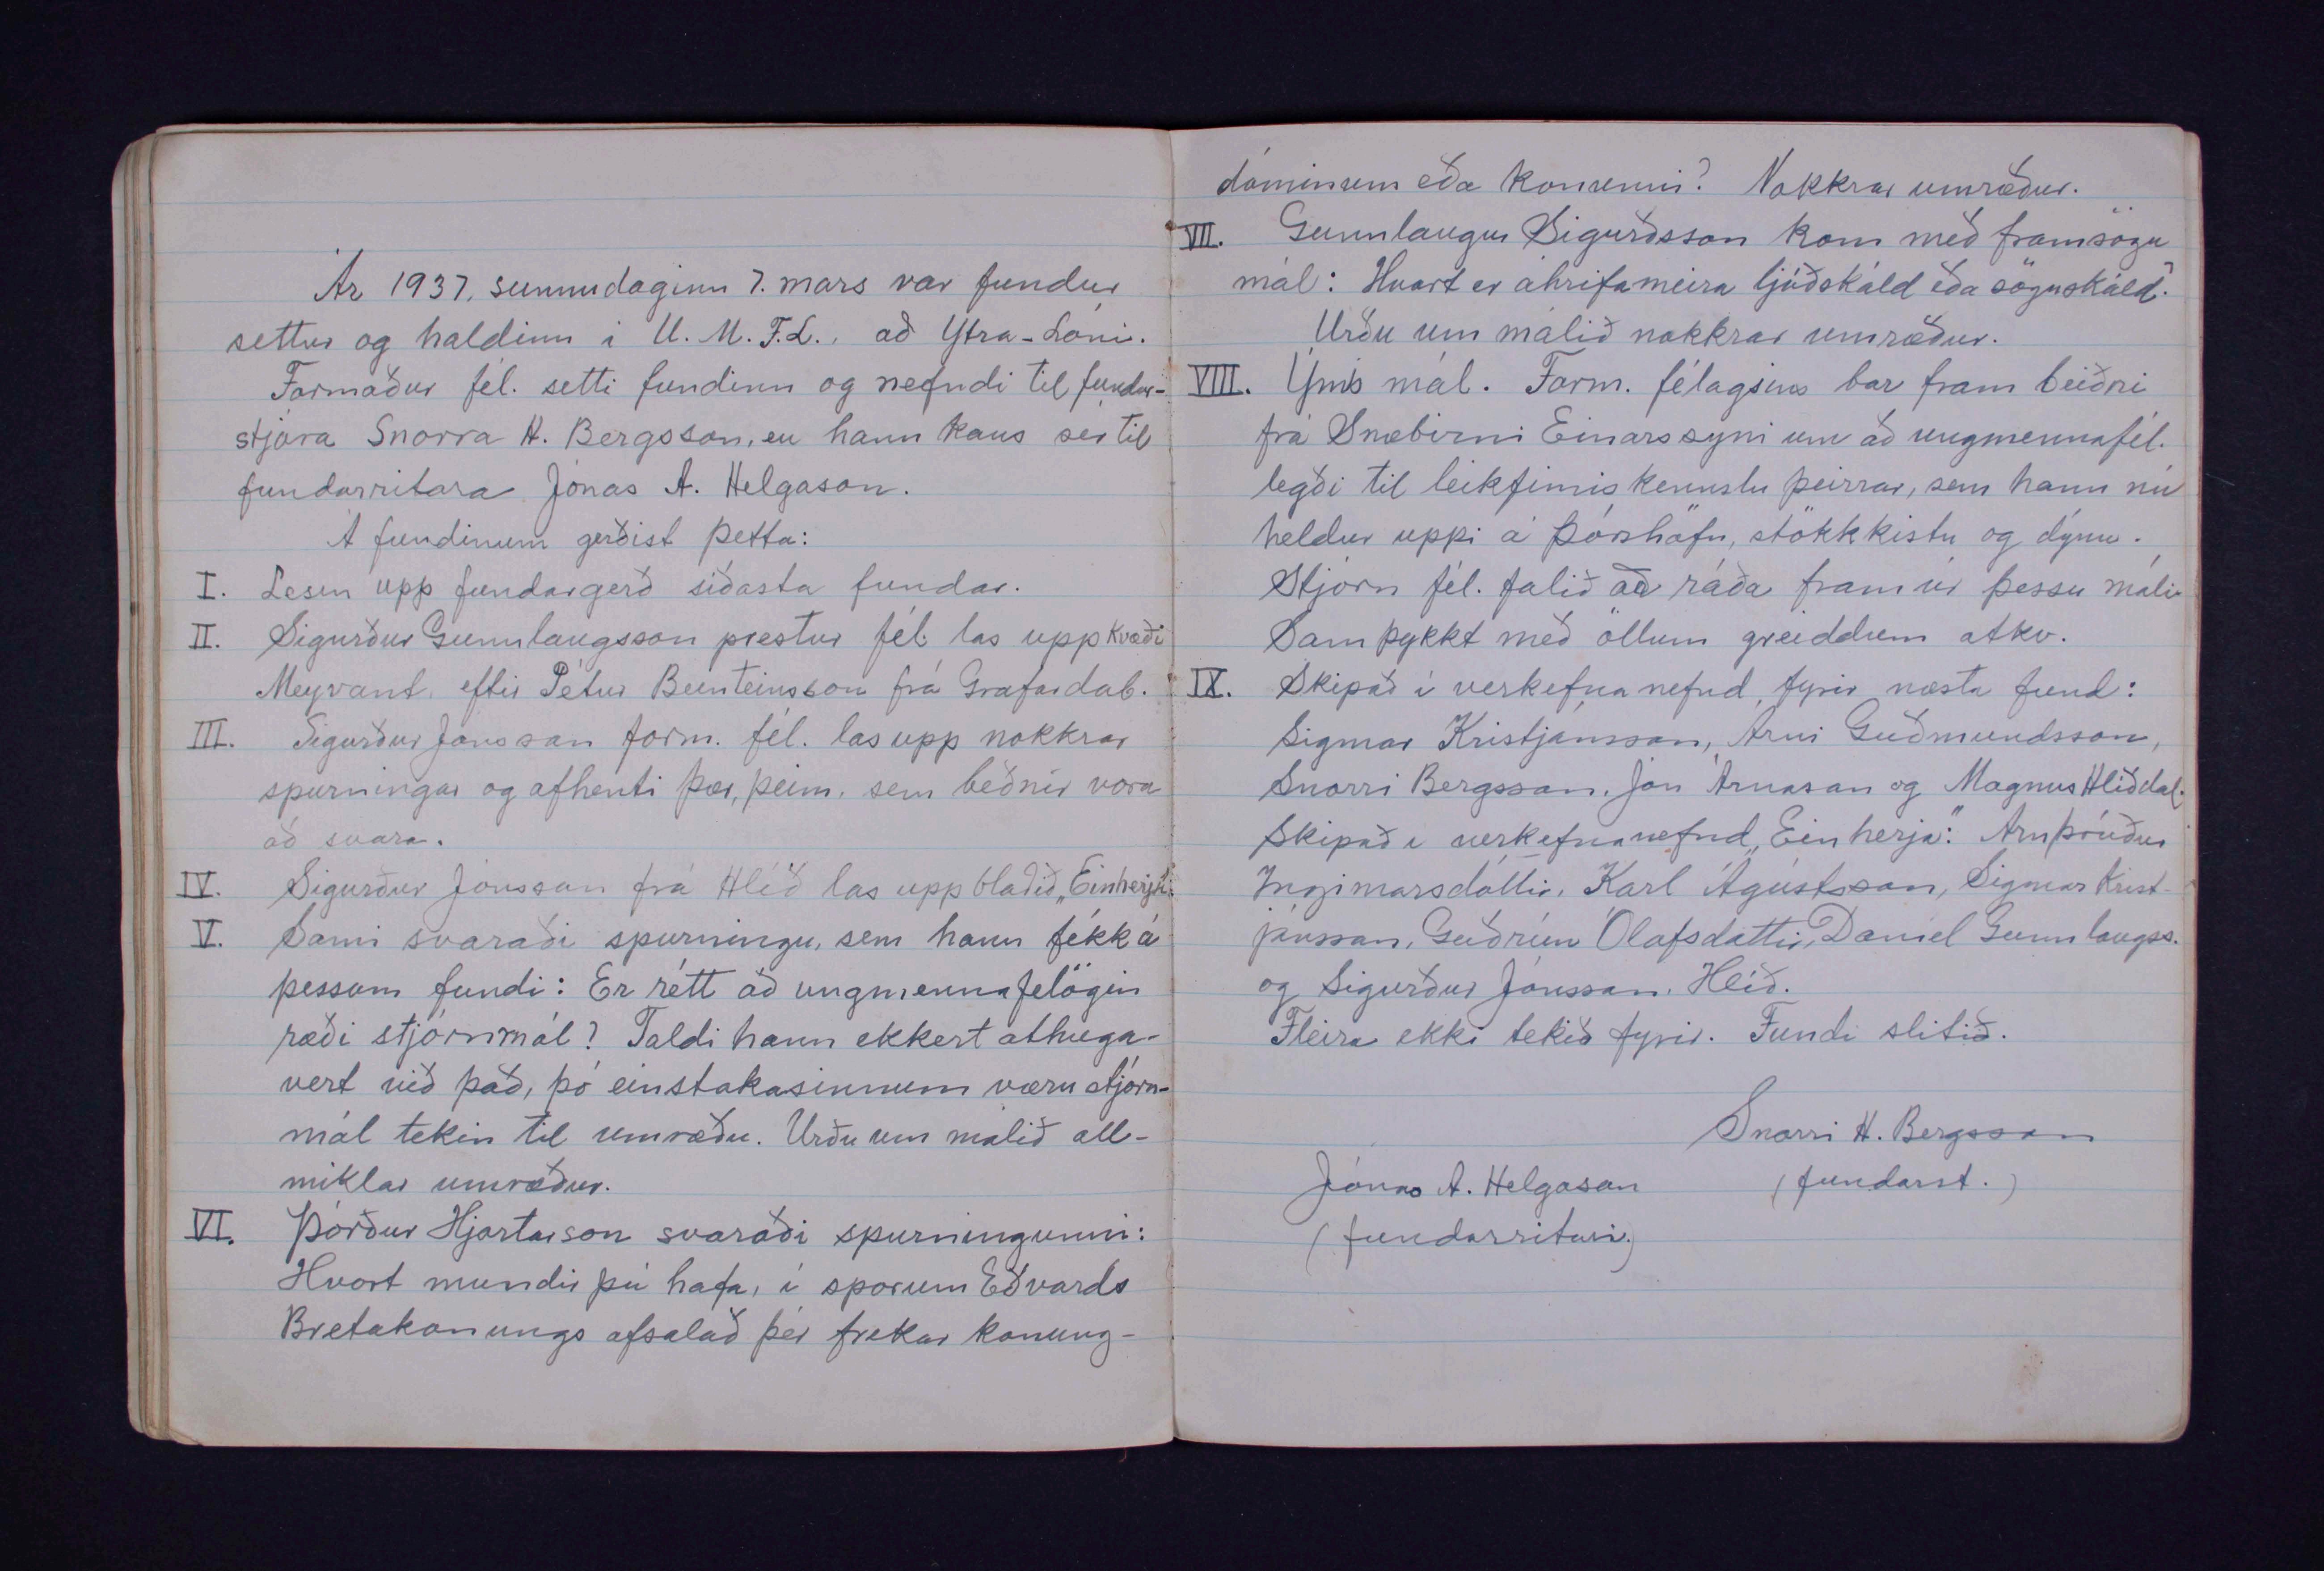 Ár 1937, sunnudaginn 7. mars var fundur
settur og haldinn í U. M. F.L., að Ytra-Lóni.
Formaður fél. setti fundinn og nefndi til fundar-
stjóra Snorra H. Bergsson, en hann kaus sér til
fundarritara Jónas A. Helgason.
Á fundinum gerðist þetta:
I. Lesin upp fundargerð síðasta fundar.
II. Sigurður Gunnlaugsson prestur fél. las upp kvæði
Meyvant, eftir Pétur Beinteinsson frá Grafardal.
III. Sigurður Jónsson form. fél. las upp nokkrar
spurningar og afhenti þær, þeim, sem beðnir vora
að svara.
IV. Sigurður Jónsson frá Hlíð las upp blaðið „Einherji“.
V. Sami svaraði spurningu, sem hann fékk á
þessum fundi: Er rétt að ungmennafelögin
ræði stjórnmál? Taldi hann ekkert athuga-
vert við það, þó einstakasinnum væru stjórn-
mál tekin til umræðu. Urðu um málið all-
miklar umræður.
VI. Þórður Hjartarson svaraði spurningunni:
Hvort mundir þú hafa, í sporum Eðvards
Bretakonungs afsalað þér frekar konung-
dóminum eða konunni? Nokkrar umræður.
VII. Gunnlaugur Sigurðsson kom með framsögu
mál: Hvort er áhrifameira ljóðskáld eða söguskáld?
Urðu um málið nokkrar umræður.
VIII. Ýmis mál. Form. félagsins bar fram beiðni
frá Snæbirni Einarssyni um að ungmennafél.
legði til leikfimiskennslu þeirrar, sem hann nú
heldur uppi á Þórshöfn, stökkkistu og dýnu.
Stjórn fél. falið að ráða fram úr þessu máli.
Samþykkt með öllum greiddum atkv.
IX. Skipað í verkefnanefnd, fyrir næsta fund:
Sigmar Kristjánsson, Árni Guðmundsson,
Snorri Bergsson, Jón Árnason og Magnus Hliðdal.
Skipað í verkefnanefnd „Einherja“: Arnþrúður
Ingimarsdóttir, Karl Ágústsson, Sigmar Krist-
jánsson, Guðrún Ólafsdóttir, Daníel Gunnlaugss.
og Sigurður Jónsson, Hlíð.
Fleira ekki tekið fyrir. Fundi slitið.
Snorri H. Bergsson
Jónas A. Helgason (fundarst.)
(fundarritari)